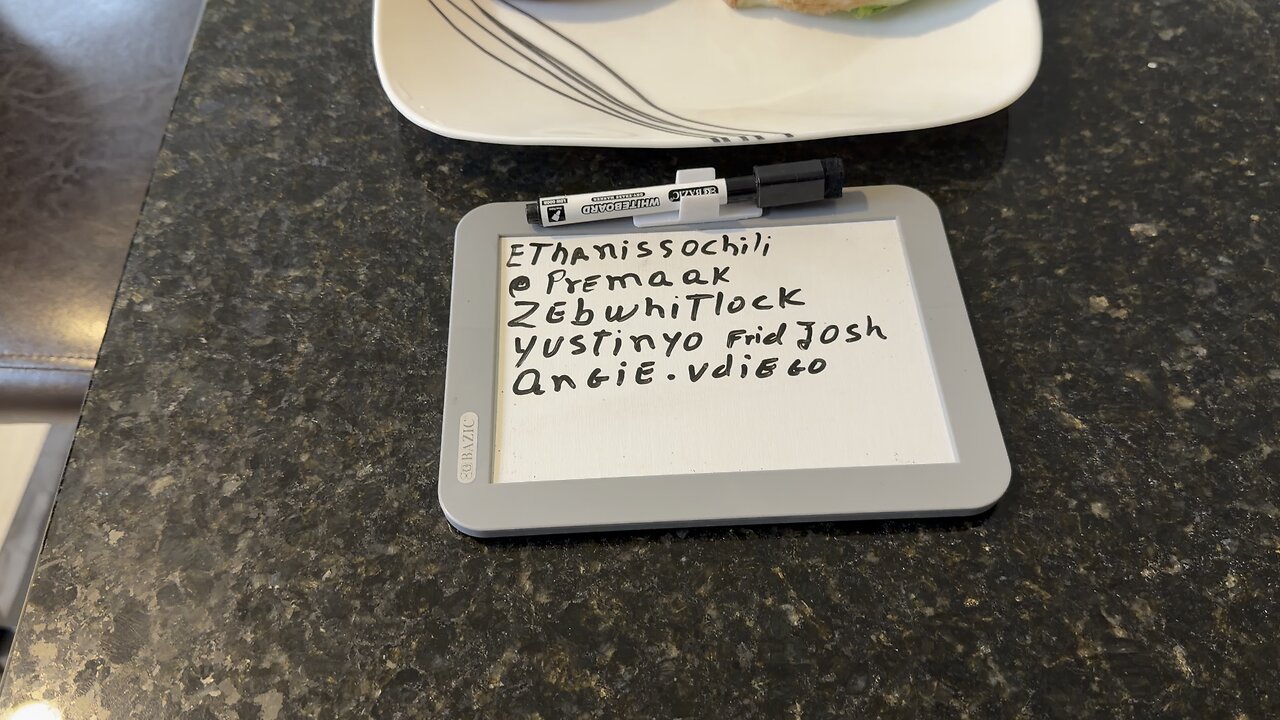 BAZIC
WHITEBOARD
EThanissochili
@PrEmaaK
ZEbwhiTlocK
yusTinyo Frid Josh
AnGiE.vdiEGO
BAZIC